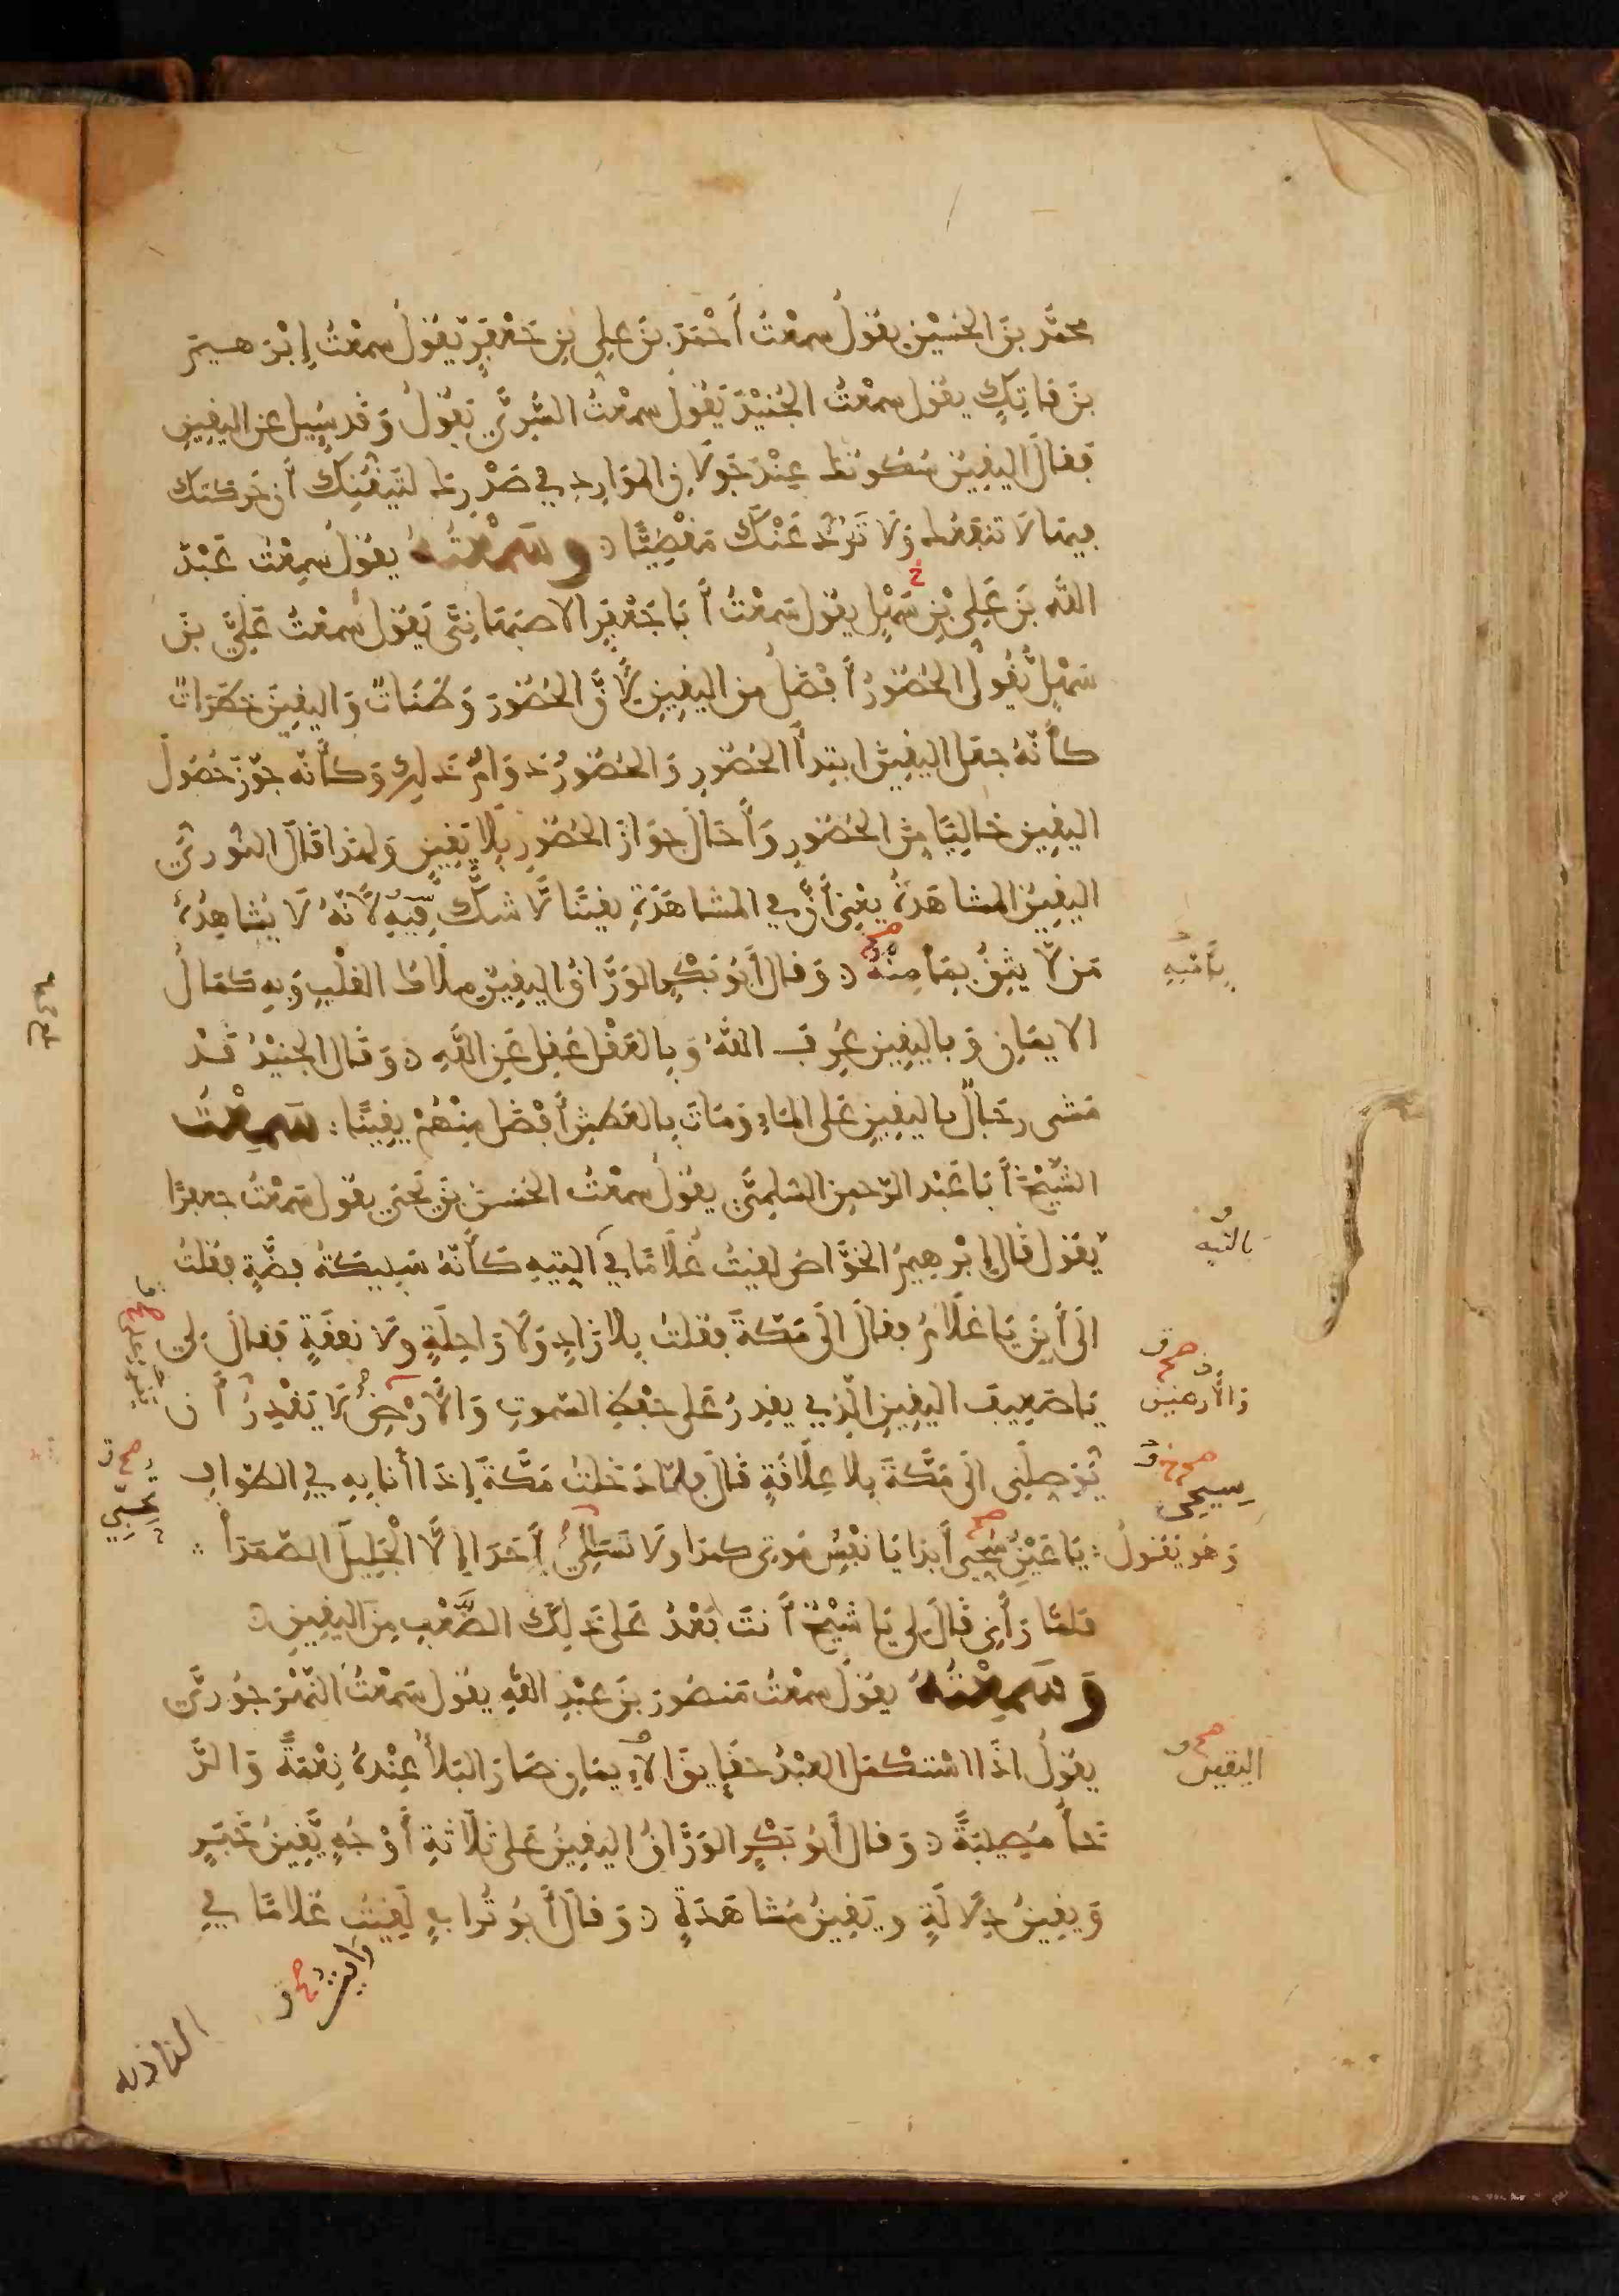 محمَّد بنَ الحُسَيْنِ يقُولُ سمِعْتُ أَحْمَدَ بنَ عَلِي بنِ جَعْفَرٍ يَقُولُ سمِعْتُ إِبْرَهِيمَ
بنَ فَاتِكٍ يقُول سمِعْتُ الجُنَيْدَ يَقُولُ سمِعْتُ السَّرِيَّ يَقُولُ وَقَد سُيِلَ عن اليقِينِ
فَقالَ اليقِينُ سُكُونُكَ عِنْدَ جَوَلَانِ المَوَارِدِ في صَدْرِكَ لتَيَقُّنِكَ أَنَّ حَركتَكَ
فِيهَا لَا تنفَعُكَ وَلَا تَرُدُّ عَنْكَ مَقْضِيًّا وَسَمِعْتُهُ يقُولُ سمِعْتُ عَبْدَ
اللَّه بنَ عَلِي بْنِ سَهْلٍ يقول سَمِعْتُ أَبَا جَعْفَرٍ الاصبَهَانِيَّ يَقُولُ سمِعْتُ عَلِيَّ بنَ
سَهْلٍ يَقُولُ الحُضُورُ أَفْضَلُ مِن اليقِينِ لِأَنَّ الحُضُورَ وَطَنَاتٌ وَاليقِينَ خَطَرَاتٌ
كَأَنَّهُ جعَلَ اليقِينَ ابتِدَأَ الحُضُورِ وَالحُضُورُ دَوَامُ ذَلِك وَكَأَنَّه جوَّزَ حُصُولَ
اليقِينِ خَالِيًا مِنَ الحُضُورِ وَأَحَالَ جوَازَ الحُضُورِ بِلَا يَقِينٍ وَلهذا قَالَ النُّورِيُّ
اليقِينُ المشاهَدَةُ يعْنِي أَنَّ في المشاهَدَةِ يقينًا لَّا شكَّ فِيهِ لِأَنَّهُ لَا يُشاهِدُهُ
مَن لَّا يثِقُ بمَا مِنْهُ وَقال أَبُو بَكْرٍ الوَرَّاقُ اليقِينُ مِلَاكُ القلْبِ وَبِهِ كمَالُ
الايمَانِ وَباليَقِينِ عُرِفَ اللَّهُ وَبِالعَقْلِ عُقِلَ عَنِ اللَّهِ وَقَال الجُنيْدُ قَدْ
مَشى رجَالٌ باليقِينِ عَلى المَاءِ وَمَاتَ بِالعَطَشِ أَفْضَلُ مِنْهُمْ يقِينًا: سَمِعْتُ
الشَّيْخَ أَبَا عَبْد الرَّحمِن السُّلَمِيَّ يقُولُ سمِعْتُ الحُسَيْنَ بنَ يَحْيَى يقُول سَمِعْتُ جعفرًا
يَقول قَال إِبْرهِيمُ الخَوَّاصُ لقيتُ غُلَامًا في التِّيهِ كَأَنَّهُ سَبِيكَةُ فِضَّةٍ فقُلتُ
الَى أَيْنَ يَا غُلَامُ فقالَ الَى مَكَّةَ فقُلتُ بِلا زَادٍ وَلَا رَاحِلَةٍ ولَا نفَقَةٍ فقالَ لِي
يَا ضَعِيفَ اليقِينِ الَّذِي يقدِرُ عَلى حِفْظِ السَّموتِ وَالْأَرْضِ لَا يَقْدِرُ أَن
يُوَصِلَنِي الَى مَكَّةَ بِلا عِلَاقَةٍ قَالَ فلمَّا دَخَلتُ مَكَّةَ إِذَا أَنا بِهِ فِي الطَّوافِ
وَهُوَ يَقُولُ: يَا عَيْنُ سُحِّي أَبَدَا يَا نفْسُ مُوتِي كمَدَا ولَا تُحِبِّي أَحَدَا إِلَّا الْجَلِيلَ الصَّمَدَا
فلمَّا رَأَنِي قَال لِي يَا شَيْخُ أَنتَ بَعْدُ عَلى ذَلِكَ الضَّعْفِ مِنَ اليقِينِ
وَسَمِعْتُهُ يقولُ سمِعْتُ مَنصُورَ بنَ عَبْدِ اللَّهِ يقُول سَمِعْتُ النَّهْرَجُورِيَّ
يقُولُ اذَا اسْتكْمَلَ العَبْدُ حقَايِقَ الْإِيمَانِ صَارَ البَلَأُ عِنْدَهُ نِعْمَةً وَالرَّ
خَأُ مُصِيبَةً وَقال أَبُو بَكْرٍ الوَرَّاقُ اليقِينُ عَلى ثلَاثَةِ أَوْجُهٍ يَّقِينُ خَبَرٍ
وَيقِينُ دِلَالَةٍ ويَقِينُ مُشاهَدَةٍ وَقال أَبُو تُرَابٍ لَقِيتُ غُلامًا فِي
بالتيه
صح
والأرضين
صح
سيحي
صح
تحبي
اليقين
صح
البادية